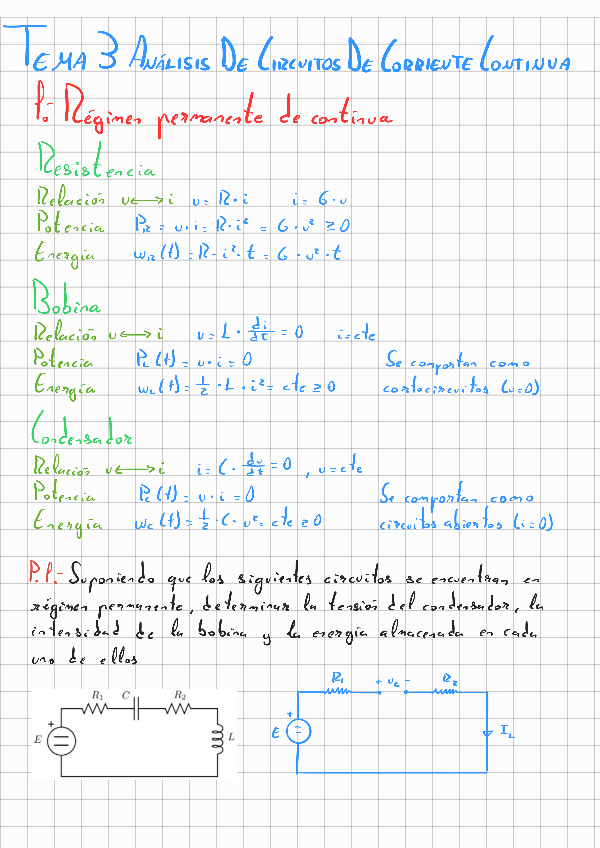 TEMA 3 ANÁLISIS DE CIRCUITOS DE CORRIENTE CONTINUA
1.- Régimen permanente de continua
Resistencia
Relación u⟷i u = R·i i = G·u
Potencia P_R = u·i = R·i² = G·u² ≥ 0
Energía w_R(t) = R·i²·t = G·u²·t
Bobina
Relación u⟷i u = L·di/dt = 0 i = cte
Potencia P_L(t) = u·i = 0 Se comportan como
Energía w_L(t) = 1/2·L·i² = cte ≥ 0 cortocircuitos (u=0)
Condensador
Relación u⟷i i = C·du/dt = 0, u = cte
Potencia P_C(t) = u·i = 0 Se comportan como
Energía w_C(t) = 1/2·C·u² = cte ≥ 0 circuitos abiertos (i=0)
P.1.- Suponiendo que los siguientes circuitos se encuentran en
régimen permanente, determinar la tensión del condensador, la
intensidad de la bobina y la energía almacenada en cada
uno de ellos
R₁ C R₂
+
E L
R₁ + u_c - R₂
+
E I_L